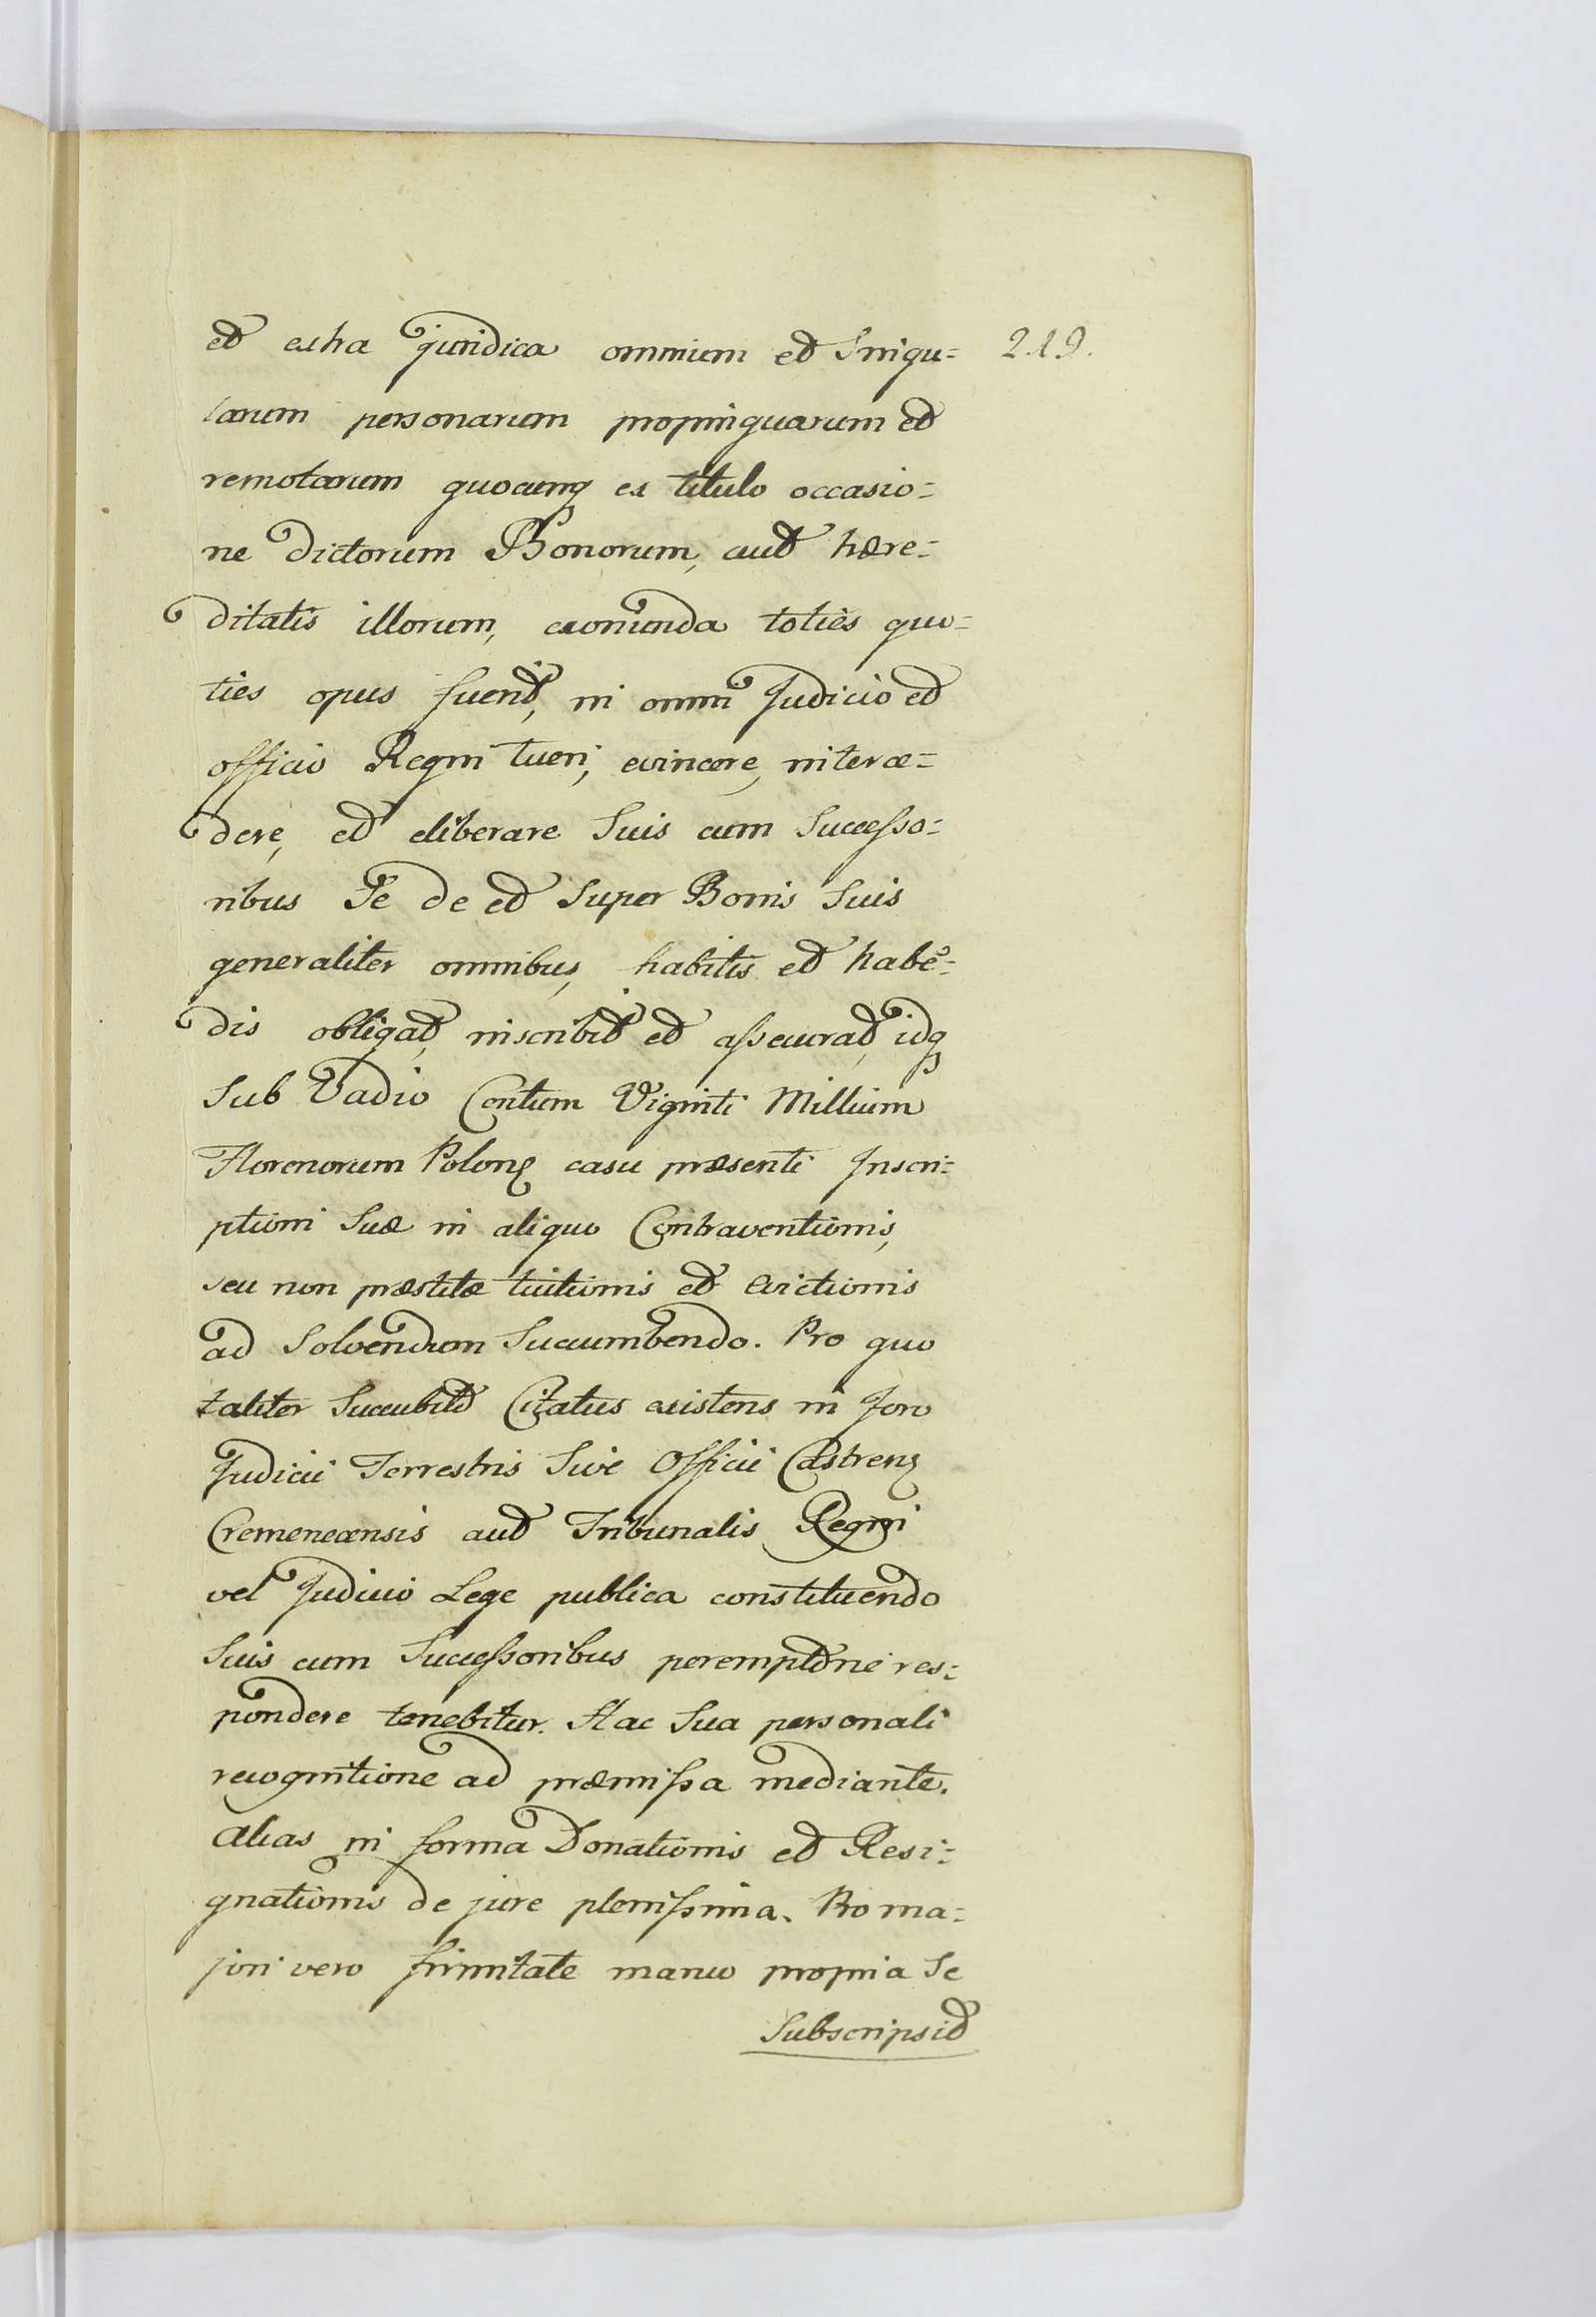 et extra juridica omnium et Singu=
219.
larum personarum propinquarum et
remotarum quocunq ex titulo occasio=
ne dictorum Bonorum, aut hære=
ditatis illorum, exoriunda toties quo=
ties opus fuerit, in omni Judicio et
officio Regni tueri, evincere, interce=
dere, et eliberare Suis cum Successo=
ribus Se de et Super Bonis Suis
generaliter omnibus, habitis et habē=
dis obligat, inscribit et assecurat, idq
Sub Vadio Centum Viginti Millium
Florenorum Polonʒ casu præsenti Inscri=
ptioni Suæ in aliquo Contraventionis,
seu non præstitæ tuitionis et Evictionis
ad Solvendum Succumbendo. Pro quo
taliter Succubito Citatus existens in foro
Judicii Terrestris Sive Officii Castrenʒ
Cremenecensis aut Tribunalis Regni
vel Judicio Lege publica constituendo
Suis cum Successoribus peremptorie res=
pondere tenebitur. Hac Sua personali
recognitione ad præmissa mediante.
Alias in forma Donationis et Resi=
gnationis de jure plenissima. Pro ma=
jori vero firmitate manu propria Se
Subscripsit